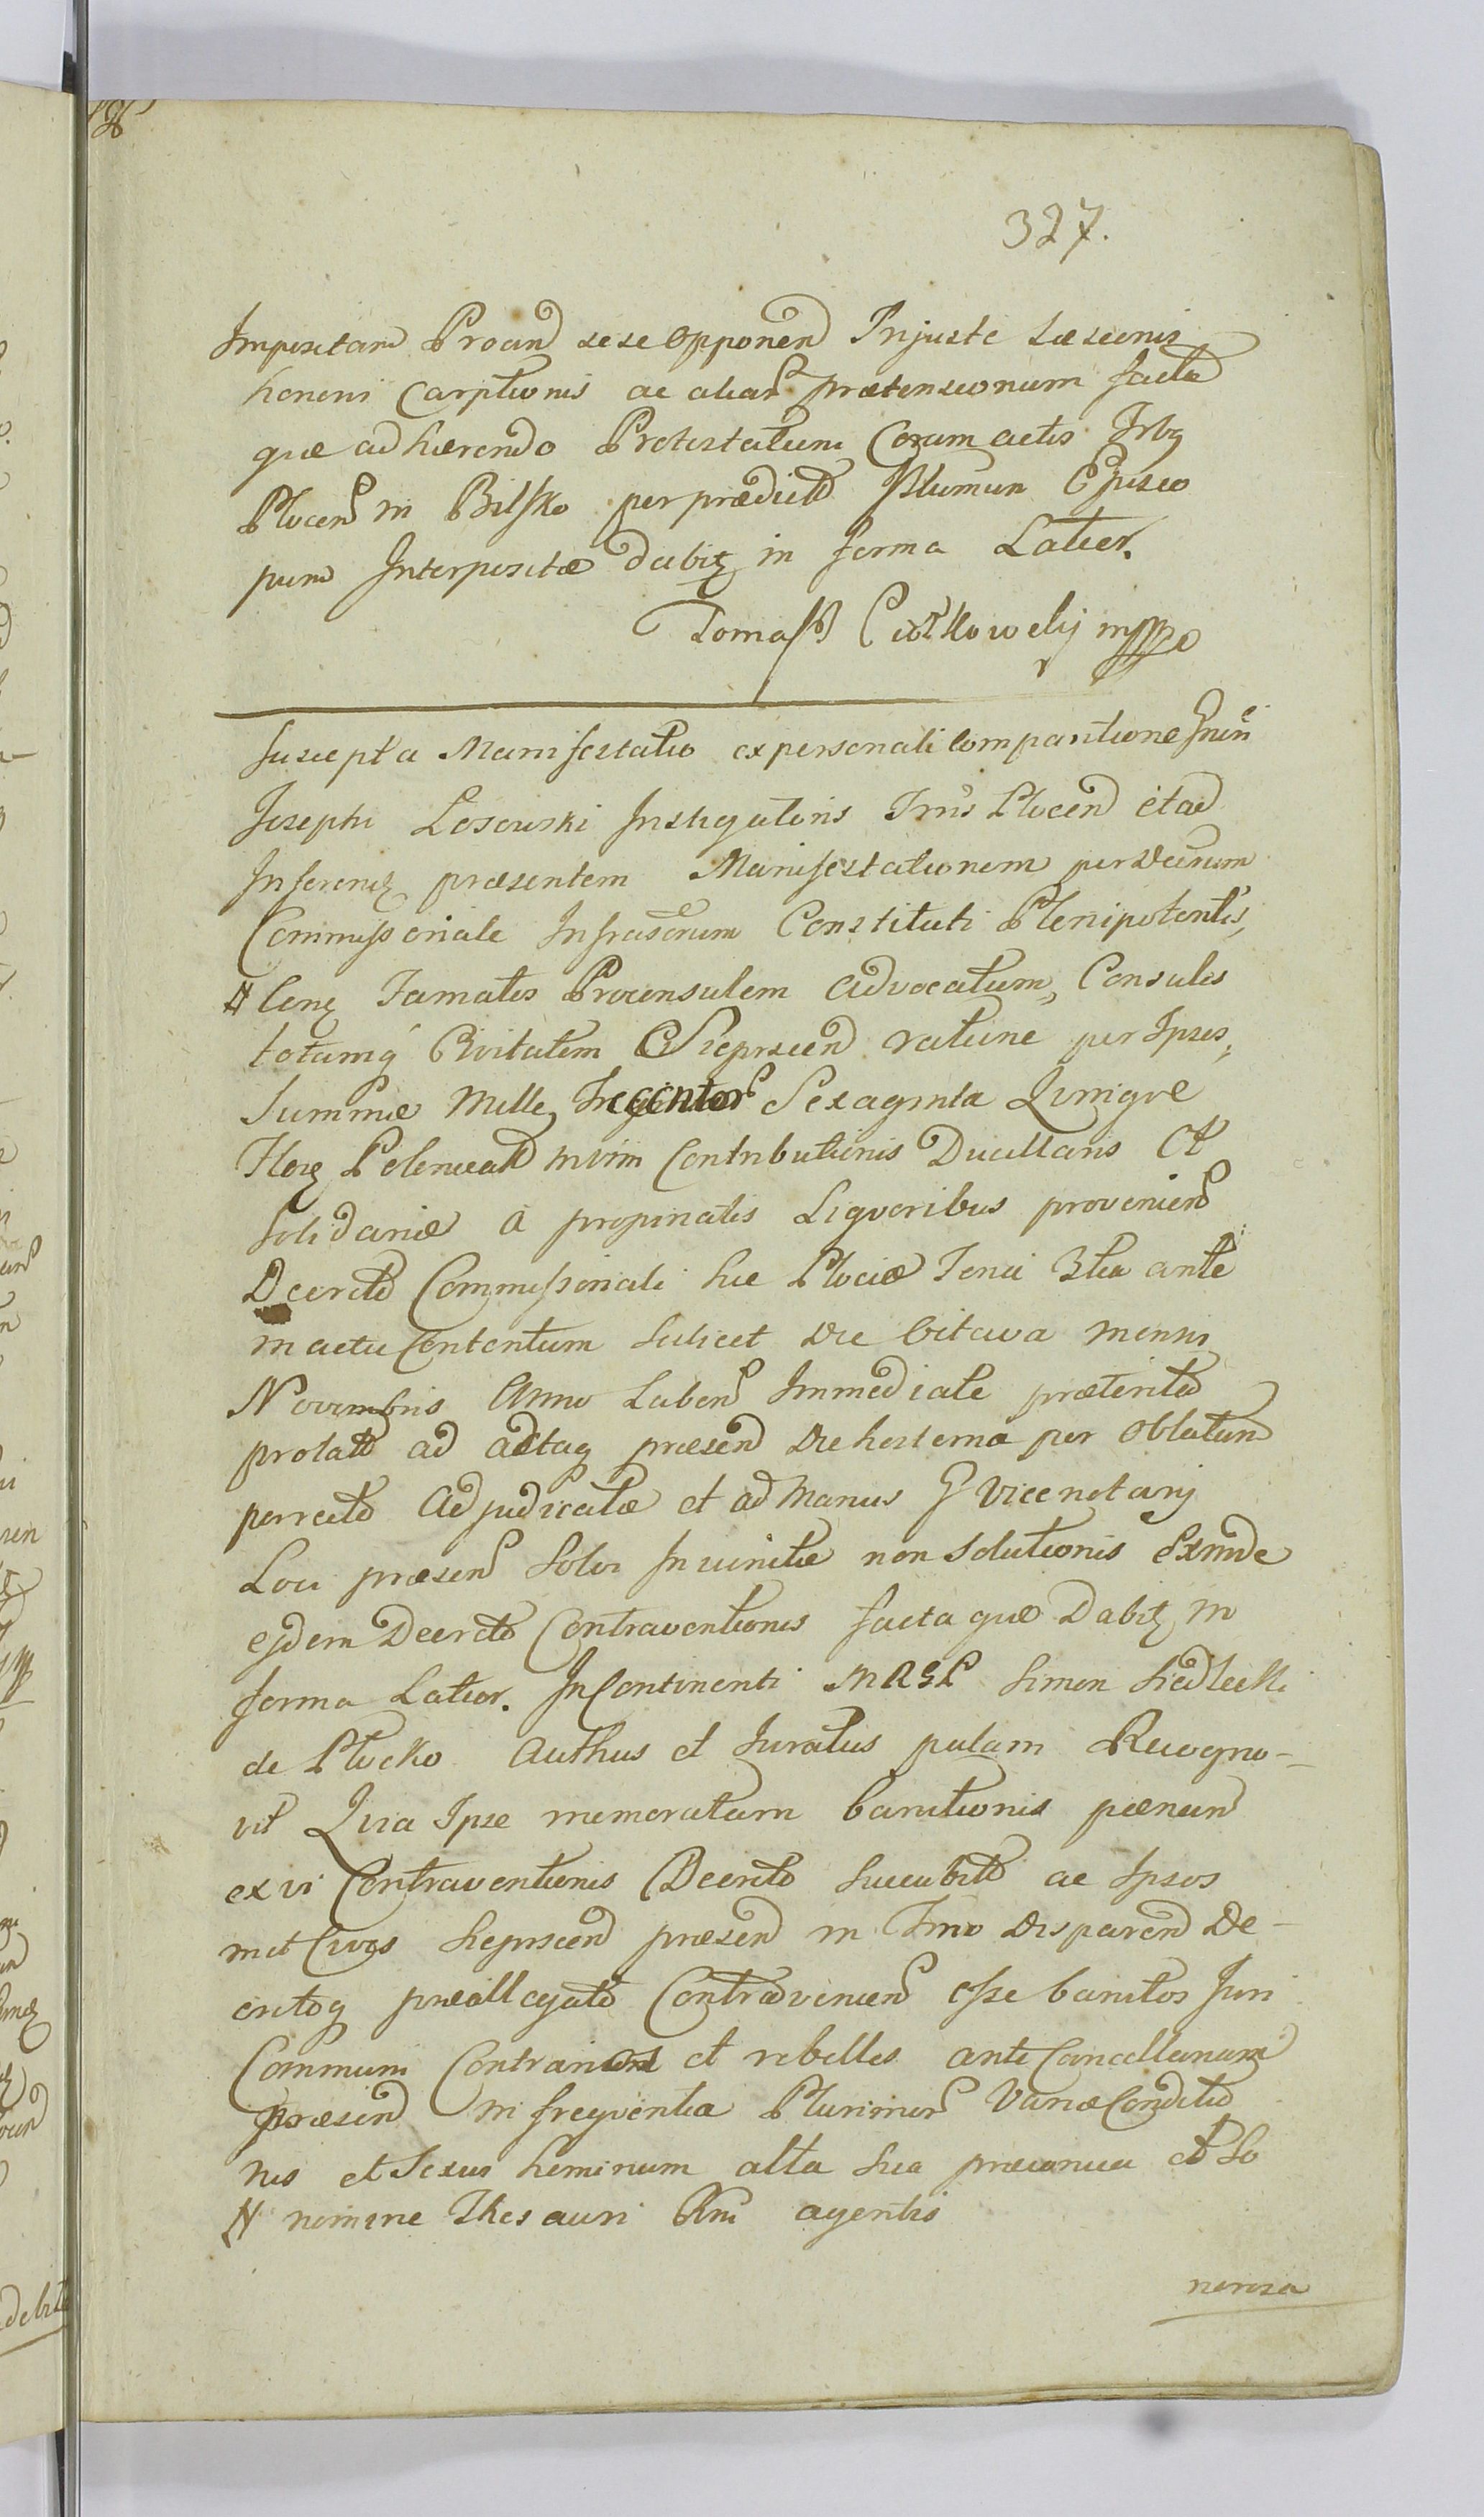 327.
Impositam Procund sese opponend Injuste Læsionis
honoris Carptionis ac aliar prætensionum facta
quæ adhærendo Protestatum Coram actis Trbg
Plocen in Bilsko per prædictd Illumum Episco
pum Interpositæ dabitz in forma Latior.
Tomasz Ciółkowskij mppo
Suscepta Manifestatio ex personali Comparitione Gnni
Josephi Losowski Instigatoris Trnis Plocend et ad
Inferendz præsentem Manifestationem per Decrum
Commissoriale Infrascrum Constituti Plenipotentis,
# Conz Famatos Proconsulem Advocatum, Consules
totamq Civitatem Sieprscend ratione per Ipsos,
Summæ Mille, Trecentor Sexaginta Quinque
Florz Polonicald in vim Contributionis Ducillaris Et
Solidariæ a propinatis Liquoribus provenien
Decretd Commissoriali hic Plociæ Feria 3tia ante
in actu Contentum Scilicet Die Octava mensis
Novembris Anno Laben Immediate præteritd
prolatd ad actaq præsend Die hesterna per Oblatam
porrectd Adjudicatæ et ad Manus G Vicenotarij
Loci præsen Solvi Injunctæ non Solutionis Exinde
ejdem Decretd Contraventionis facta quæ Dabitz in
forma Latior. In Continenti MRGL Simon Siedlecki
de Plocko Authus et Juratus palam Recogno-
vit Quia Ipse memoratam banitionis pænam
ex vi Contraventionis Decretd Succubitd ac Ipsos
met Cives Sieprscend præsend in Trno Disparend De-
cretoq præallegatd Contravenien esse banitos Juri
Communi Contrarios et rebelles ante Cancellariam
præsend in frequentia Plurimor Variæ Conditio
nis et Sexus hominum alta sua præconica et So
# nomine Thesauri Rni agentis
norosa